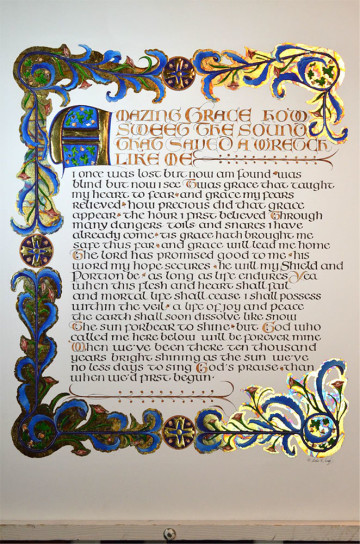 Amazing Grace how
sweet the sound
that saved a wretch
like me
I once was lost but now am found was
blind but now I see Twas grace that taught
my heart to fear and grace my fears
relieved how precious did that grace
appear the hour I first believed Through
many dangers toils and snares I have
already come tis grace hath brought me
safe thus far and grace will lead me home
The Lord has promised good to me his
word my hope secures He will my Shield and
Portion be as long as life endures Yea
when this flesh and heart shall fail
and mortal life shall cease I shall possess
within the veil a life of joy and peace
The earth shall soon dissolve like snow
The sun forbear to shine but God who
called me here below will be forever mine
When we've been there ten thousand
years bright shining as the sun we've
no less days to sing God's praise than
when we'd first begun